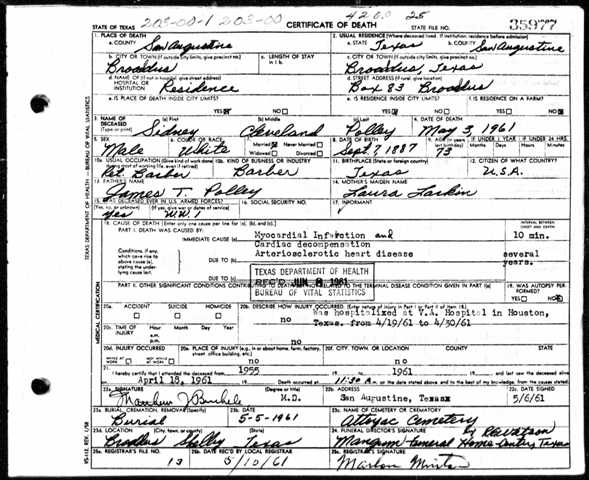 203-00-1 203-00 4200 25
STATE OF TEXAS CERTIFICATE OF DEATH STATE FILE NO. 35977
1. PLACE OF DEATH 2. USUAL RESIDENCE (Where deceased lived. If institution, residence before admission)
a. COUNTY San Augustine a. STATE Texas b. COUNTY San Augustine
b. CITY OR TOWN (If outside city limits, give precinct no.) c. LENGTH OF STAY c. CITY OR TOWN (If outside city limits, give precinct no.)
Broaddus Broaddus, Texas
d. NAME OF (If not in hospital, give street address) HOSPITAL OR INSTITUTION d. STREET ADDRESS (If rural, give location)
Residence Box 83 Broaddus
e. IS PLACE OF DEATH INSIDE CITY LIMITS? e. IS RESIDENCE INSIDE CITY LIMITS? f. IS RESIDENCE ON A FARM?
YES NO YES NO YES NO
3. NAME OF DECEASED (Type or print) (a) First (b) Middle (c) Last 4. DATE OF DEATH
Sidney Cleveland Polley May 3, 1961
5. SEX 6. COLOR OR RACE 7. Married Never Married 8. DATE OF BIRTH 9. AGE (In years last birthday) IF UNDER 1 YEAR IF UNDER 24 HRS.
Male White Widowed Divorced Sept 7 1887 73 Months Days Hours Min.
10a. USUAL OCCUPATION (Give kind of work done during most of working life, even if retired) 10b. KIND OF BUSINESS OR INDUSTRY 11. BIRTHPLACE (State or foreign country) 12. CITIZEN OF WHAT COUNTRY?
Ret. Barber Barber Texas U.S.A.
13. FATHER'S NAME 14. MOTHER'S MAIDEN NAME
James T. Polley Laura Larkin
15. WAS DECEASED EVER IN U.S. ARMED FORCES? 16. SOCIAL SECURITY NO. 17. INFORMANT
(Yes, no, or unknown) (If yes, give war or dates of service)
Yes W.W. 1
18. CAUSE OF DEATH [Enter only one cause per line for (a), (b), and (c).] INTERVAL BETWEEN ONSET AND DEATH
PART I. DEATH WAS CAUSED BY: Myocardial Infarction and
IMMEDIATE CAUSE (a) Cardiac decompensation 10 min.
Conditions, if any, which gave rise to above cause (a), stating the underlying cause last. DUE TO (b) Arteriosclerotic heart disease several years.
DUE TO (c)
TEXAS DEPARTMENT OF HEALTH
REC'D JUN 8 1961
BUREAU OF VITAL STATISTICS
PART II. OTHER SIGNIFICANT CONDITIONS CONTRIBUTING TO DEATH BUT NOT RELATED TO THE TERMINAL DISEASE CONDITION GIVEN IN PART I(a) 19. WAS AUTOPSY PERFORMED?
YES NO
20a. ACCIDENT SUICIDE HOMICIDE 20b. DESCRIBE HOW INJURY OCCURRED. (Enter nature of injury in Part I or Part II of item 18.)
Was hospitalized at V.A. Hospital in Houston,
20c. TIME OF INJURY Hour Month Day Year a.m. p.m. Texas, from 4/19/61 to 4/30/61
no
20d. INJURY OCCURRED 20e. PLACE OF INJURY (e.g., in or about home, farm, factory, street, office building, etc.) 20f. CITY, TOWN, OR LOCATION COUNTY STATE
WHILE AT WORK NOT WHILE AT WORK no no
21. I hereby certify that I attended the deceased from 1955 to 1961 and last saw the deceased alive
April 18, 1961 Death occurred at 11:30 A. m. on the date stated above, and to the best of my knowledge, from the causes stated.
22a. SIGNATURE (Degree or title) 22b. ADDRESS 22c. DATE SIGNED
M.D. San Augustine, Texas 5/6/61
23a. BURIAL, CREMATION, REMOVAL (Specify) 23b. DATE 23c. NAME OF CEMETERY OR CREMATORY
Burial 5-5-1961 Attoyac Cemetery
23d. LOCATION (City, town, or county) (State) 24. FUNERAL DIRECTOR'S SIGNATURE
Shelby Texas Mangum Funeral Home Center, Texas
25a. REGISTRAR'S FILE NO. 25b. DATE REC'D BY LOCAL REGISTRAR 25c. REGISTRAR'S SIGNATURE
13 5/10/61 Marlon Minton
TEXAS DEPARTMENT OF HEALTH — BUREAU OF VITAL STATISTICS
MEDICAL CERTIFICATION